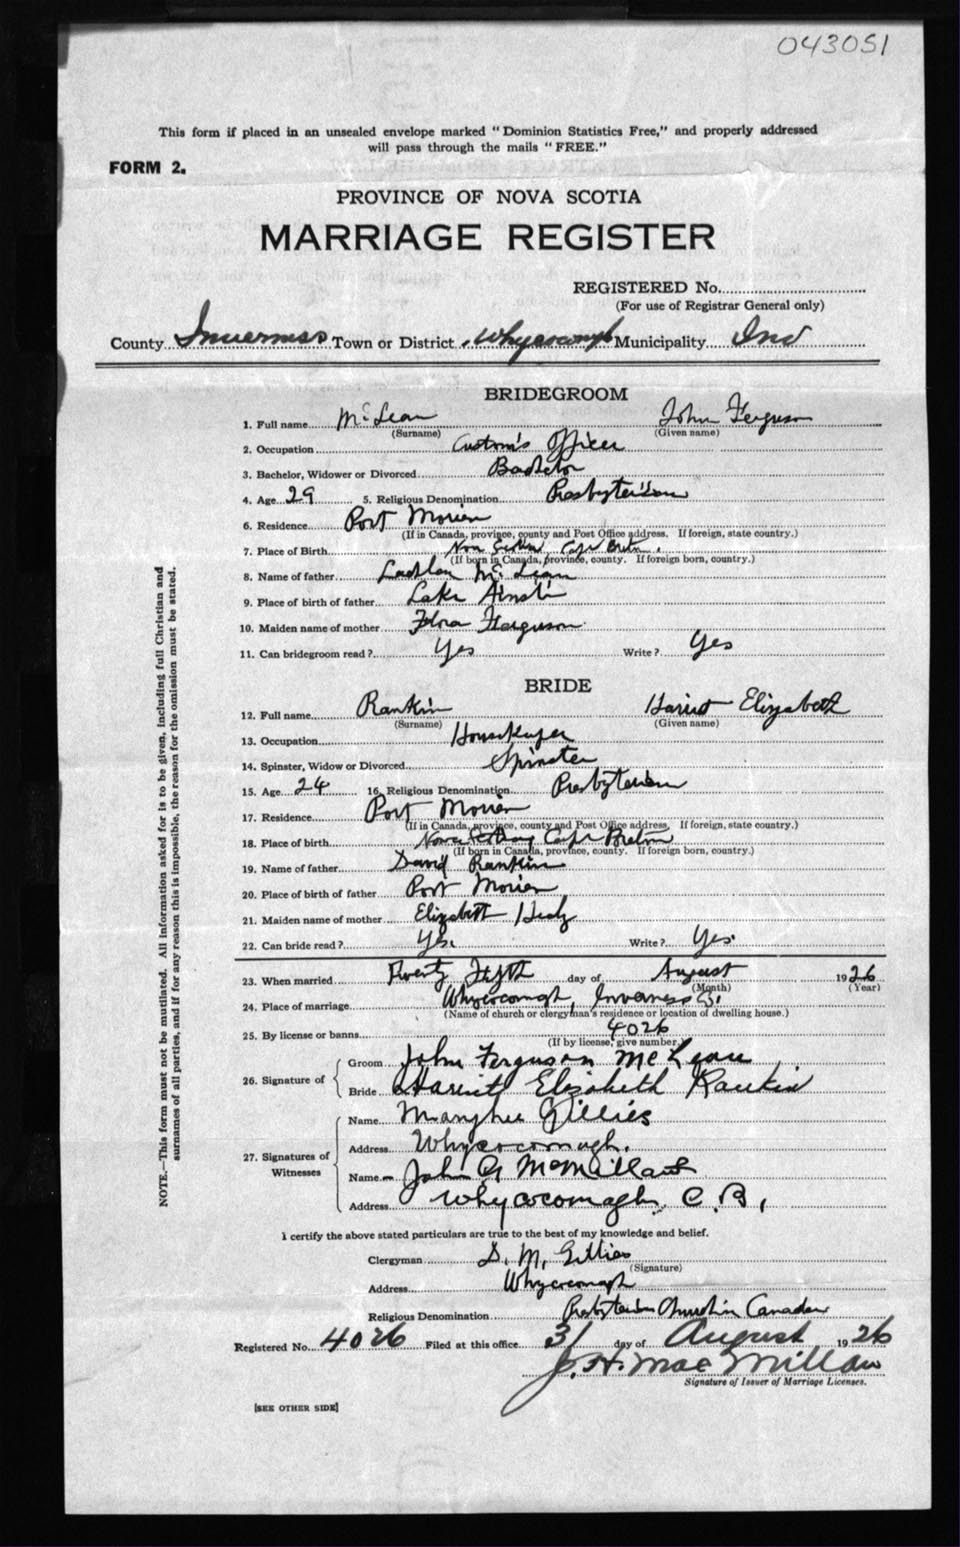 043051
This form if placed in an unsealed envelope marked "Dominion Statistics Free," and properly addressed
will pass through the mails "FREE."
FORM 2.
PROVINCE OF NOVA SCOTIA
MARRIAGE REGISTER
REGISTERED No.
(For use of Registrar General only)
County Inverness Town or District Whycocomagh Municipality Inv
BRIDEGROOM
1. Full name McLean John Ferguson
(Surname) (Given name)
2. Occupation Custom's Officer
3. Bachelor, Widower or Divorced Bachelor
4. Age 29 5. Religious Denomination Presbyterian
6. Residence Port Morien
(If in Canada, province, county and Post Office address. If foreign, state country.)
7. Place of Birth Cape Breton
(If born in Canada, province, county. If foreign born, country.)
8. Name of father Lachlan McLean
9. Place of birth of father Lake Ainslie
10. Maiden name of mother Flora Ferguson
11. Can bridegroom read? Yes Write? Yes
BRIDE
12. Full name Rankin Harriet Elizabeth
(Surname) (Given name)
13. Occupation Housekeeper
14. Spinster, Widow or Divorced Spinster
15. Age 24 16. Religious Denomination Presbyterian
17. Residence Port Morien
(If in Canada, province, county and Post Office address. If foreign, state country.)
18. Place of birth Cape Breton
(If born in Canada, province, county. If foreign born, country.)
19. Name of father David Rankin
20. Place of birth of father Port Morien
21. Maiden name of mother Elizabeth
22. Can bride read? Yes. Write? Yes.
23. When married Twenty Fifth day of August 1926
(Month) (Year)
24. Place of marriage Whycocomagh, Inverness Co.
(Name of church or clergyman's residence or location of dwelling house.)
25. By license or banns 4026
(If by license, give number.)
26. Signature of
Groom John Ferguson McLean
Bride Harriet Elizabeth Rankin
27. Signatures of Witnesses
Name Gillies
Address Whycocomagh.
Name John A McMillan
Address Whycocomagh, C. B.,
I certify the above stated particulars are true to the best of my knowledge and belief.
Clergyman D. M. Gillies
(Signature)
Address Whycocomagh
Religious Denomination Presbyterian Church in Canada
Registered No. 4026 Filed at this office 31 day of August 1926
J. H. MacMillan
Signature of Issuer of Marriage Licenses.
[SEE OTHER SIDE]
NOTE.—This form must not be mutilated. All information asked for is to be given, including full Christian and
surnames of all parties, and if for any reason this is impossible, the reason for the omission must be stated.